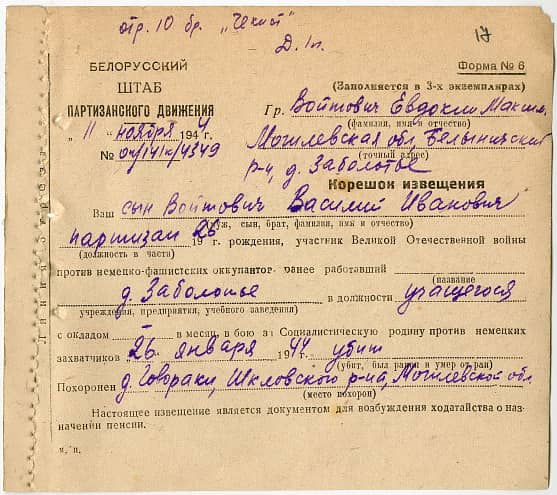 отр. 10 бр. "Чекист"
Д. 1 п.
17
БЕЛОРУССКИЙ
ШТАБ
ПАРТИЗАНСКОГО ДВИЖЕНИЯ
"11" ноября 1944 г.
№ 04/141к/4349
Форма № 6
(Заполняется в 3-х экземплярах)
Гр. Войтович Евдокии Максим.
(фамилия, имя и отчество)
Могилевская обл. Белыничский
(точный адрес)
р-н, д. Заболотье
Корешок извещения
Ваш сын Войтович Василий Иванович
(муж, сын, брат, фамилия, имя и отчество)
партизан 26 19 г. рождения, участник Великой Отечественной войны
(должность в части)
против немецко-фашистских оккупантов ранее работавший
(название
д. Заболотье в должности учащегося
учреждения, предприятия, учебного заведения)
с окладом — в месяц, в бою за Социалистическую родину против немецких
захватчиков 26 января 1944 убит
(убит, был ранен и умер от ран)
Похоронен д. Говораки, Шкловского р-на, Могилевской обл.
(место похорон)
Настоящее извещение является документом для возбуждения ходатайства о наз-
начении пенсии.
м. п.
Линия отреза